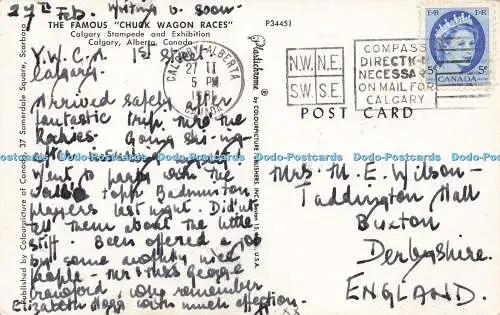 27th Feb. Writing v. soon
THE FAMOUS "CHUCK WAGON RACES"
Calgary Stampede and Exhibition
Calgary, Alberta, Canada
P34451
Y.W.C.A. 1st Street
Calgary.
Arrived safely after
fantastic trip thro' the
Rockies. Going ski-ing
Went to party with the
Badminton
players last night. Didn't
tell them about the little
stiff. Been offered a job
by some awfully nice
people - Mr & Mrs George
Crawford, who remember
Elizabeth Hogg. With much affection.
xx
Published by Colourpicture of Canada, 37 Somerdale Square, Scarboro
Plastichrome
by COLOURPICTURE PUBLISHERS, INC., Boston 15, U.S.A.
CALGARY ALBERTA
27 II
5 PM
CANADA
N.W. N.E.
S.W. S.E.
COMPASS
DIRECTION
NECESSARY
ON MAIL FOR
CALGARY
E II R E II R
5c 5c
CANADA
POST CARD
Mrs. M. E. Wilson-
Taddington Hall
Buxton
Derbyshire.
ENGLAND.
Dodo-Postcards Dodo-Postcards Dodo-Postcards Dodo-Postcards Dodo-Postcards